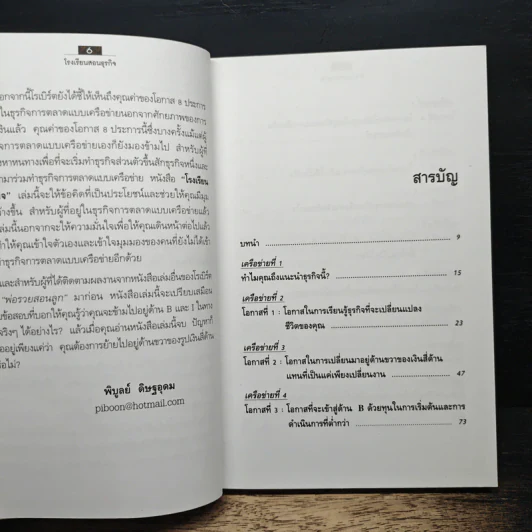 6
โรงเรียนสอนธุรกิจ
อกจากนี้โรเบิร์ตยังได้ชี้ให้เห็นถึงคุณค่าของโอกาส 8 ประการ
ในธุรกิจการตลาดแบบเครือข่ายนอกจากศักยภาพของการ
งินแล้ว คุณค่าของโอกาส 8 ประการนี้ซึ่งบางครั้งแม้แต่ผู้
จการตลาดแบบเครือข่ายเองก็ยังมองข้ามไป สำหรับผู้ที่
งหาหนทางเพื่อที่จะเริ่มทำธุรกิจส่วนตัวขึ้นสักธุรกิจหนึ่งและ
ามาร่วมทำธุรกิจการตลาดแบบเครือข่าย หนังสือ "โรงเรียน
กิจ" เล่มนี้จะให้ข้อคิดที่เป็นประโยชน์และช่วยให้คุณมีมุม
ว้างขึ้น สำหรับผู้ที่อยู่ในธุรกิจการตลาดแบบเครือข่ายแล้ว
เล่มนี้นอกจากจะให้ความมั่นใจเพื่อให้คุณเดินหน้าต่อไปแล้ว
ำให้คุณเข้าใจตัวเองและเข้าใจมุมมองของคนที่ยังไม่ได้เข้า
ำธุรกิจการตลาดแบบเครือข่ายอีกด้วย
และสำหรับผู้ที่ได้ติดตามผลงานจากหนังสือเล่มอื่นของโรเบิร์ต
"พ่อรวยสอนลูก" มาก่อน หนังสือเล่มนี้จะเปรียบเสมือน
ข้อสอบที่บอกให้คุณรู้ว่าคุณจะข้ามไปอยู่ด้าน B และ I ในทาง
จริงๆ ได้อย่างไร? แล้วเมื่อคุณอ่านหนังสือเล่มนี้จบ ปัญหาก็
อยู่เพียงแค่ว่า คุณต้องการย้ายไปอยู่ด้านขวาของรูปเงินสี่ด้าน
อไม่?
พิบูลย์ ดิษฐอุดม
piboon@hotmail.com
สารบัญ
บทนำ 9
เครือข่ายที่ 1
ทำไมคุณถึงแนะนำธุรกิจนี้? 15
เครือข่ายที่ 2
โอกาสที่ 1 : โอกาสในการเรียนรู้ธุรกิจที่จะเปลี่ยนแปลง
ชีวิตของคุณ 23
เครือข่ายที่ 3
โอกาสที่ 2 : โอกาสในการเปลี่ยนมาอยู่ด้านขวาของเงินสี่ด้าน
แทนที่เป็นแค่เพียงเปลี่ยนงาน 47
เครือข่ายที่ 4
โอกาสที่ 3 : โอกาสที่จะเข้าสู่ด้าน B ด้วยทุนในการเริ่มต้นและการ
ดำเนินการที่ต่ำกว่า 73